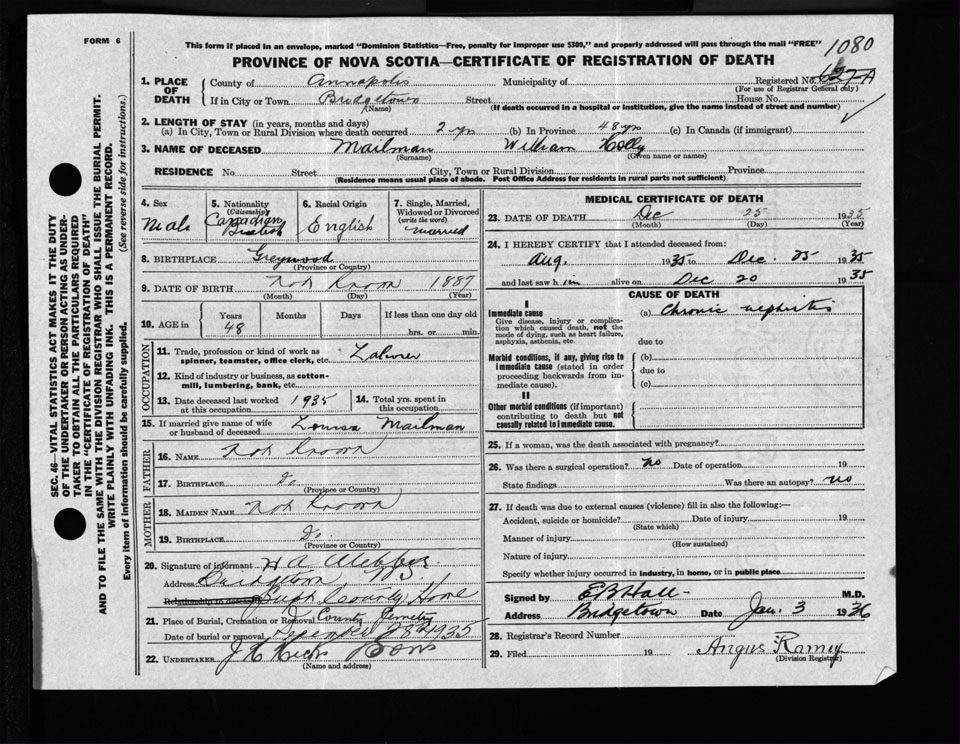 FORM 6
This form if placed in an envelope, marked "Dominion Statistics—Free, penalty for improper use $300," and properly addressed will pass through the mail "FREE"
1080
PROVINCE OF NOVA SCOTIA—CERTIFICATE OF REGISTRATION OF DEATH
1. PLACE OF DEATH
County of Annapolis Municipality of Registered No. 627-A
(For use of Registrar General only)
If in City or Town Bridgetown Street House No.
(Name) (If death occurred in a hospital or institution, give the name instead of street and number)
2. LENGTH OF STAY (in years, months and days)
(a) In City, Town or Rural Division where death occurred 2 yrs (b) In Province 48 yrs (c) In Canada (if immigrant)
3. NAME OF DECEASED Mailman William Holly
(Surname) (Given name or names)
RESIDENCE No. Street City, Town or Rural Division Province
(Residence means usual place of abode. Post Office Address for residents in rural parts not sufficient)
SEC. 46—VITAL STATISTICS ACT MAKES IT THE DUTY
OF THE UNDERTAKER OR PERSON ACTING AS UNDER-
TAKER TO OBTAIN ALL THE PARTICULARS REQUIRED
IN THE "CERTIFICATE OF REGISTRATION OF DEATH"
AND TO FILE THE SAME WITH THE DIVISION REGISTRAR WHO SHALL ISSUE THE BURIAL PERMIT.
WRITE PLAINLY WITH UNFADING INK. THIS IS A PERMANENT RECORD.
Every item of information should be carefully supplied. (See reverse side for instructions.)
4. Sex
Male
5. Nationality
(Citizenship)
Canadian
British
6. Racial Origin
English
7. Single, Married, Widowed or Divorced
(write the word)
Married
8. BIRTHPLACE Greywood
(Province or Country)
9. DATE OF BIRTH Not Known 1887
(Month) (Day) (Year)
10. AGE in Years Months Days If less than one day old
48 hrs. or min.
OCCUPATION
11. Trade, profession or kind of work as
spinner, teamster, office clerk, etc. Laborer
12. Kind of industry or business, as cotton-
mill, lumbering, bank, etc.
13. Date deceased last worked
at this occupation 1935
14. Total yrs. spent in
this occupation
15. If married give name of wife
or husband of deceased Louisa Mailman
FATHER
16. NAME Not Known
17. BIRTHPLACE Do
(Province or Country)
MOTHER
18. MAIDEN NAME Not Known
19. BIRTHPLACE Do
(Province or Country)
20. Signature of informant H A
Address Bridgetown
Relationship to deceased Supt County Home
21. Place of Burial, Cremation or Removal County Cemetery
Date of burial or removal December 28th 1935
22. UNDERTAKER J H Hicks Sons
(Name and address)
MEDICAL CERTIFICATE OF DEATH
23. DATE OF DEATH Dec 25 1935
(Month) (Day) (Year)
24. I HEREBY CERTIFY that I attended deceased from:
Aug. 1935 to Dec. 25 1935
and last saw him alive on Dec 20 1935
CAUSE OF DEATH
I
Immediate cause
Give disease, injury or complica-
tion which caused death, not the
mode of dying, such as heart failure,
asphyxia, asthenia, etc.
(a) Chronic nephritis
due to
Morbid conditions, if any, giving rise to
immediate cause (stated in order
proceeding backwards from im-
mediate cause).
(b)
due to
(c)
II
Other morbid conditions (if important)
contributing to death but not
causally related to immediate cause.
25. If a woman, was the death associated with pregnancy?
26. Was there a surgical operation? no Date of operation 19
State findings Was there an autopsy? no
27. If death was due to external causes (violence) fill in also the following:—
Accident, suicide or homicide? Date of injury 19
(State which)
Manner of injury
(How sustained)
Nature of injury
Specify whether injury occurred in industry, in home, or in public place
Signed by E B Hall M.D.
Address Bridgetown Date Jan. 3 1936
28. Registrar's Record Number
29. Filed 19 Angus Ramey
(Division Registrar)